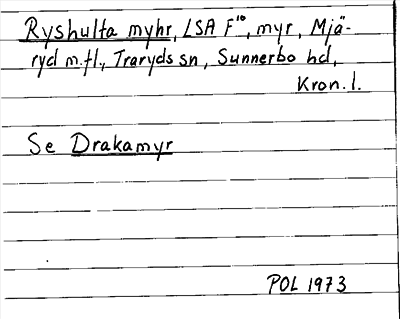 Ryshulta myhr, LSA F¹⁰, myr, Mjä-
ryd m.fl., Traryds sn, Sunnerbo hd,
Kron. l.
Se Drakamyr
POL 1973